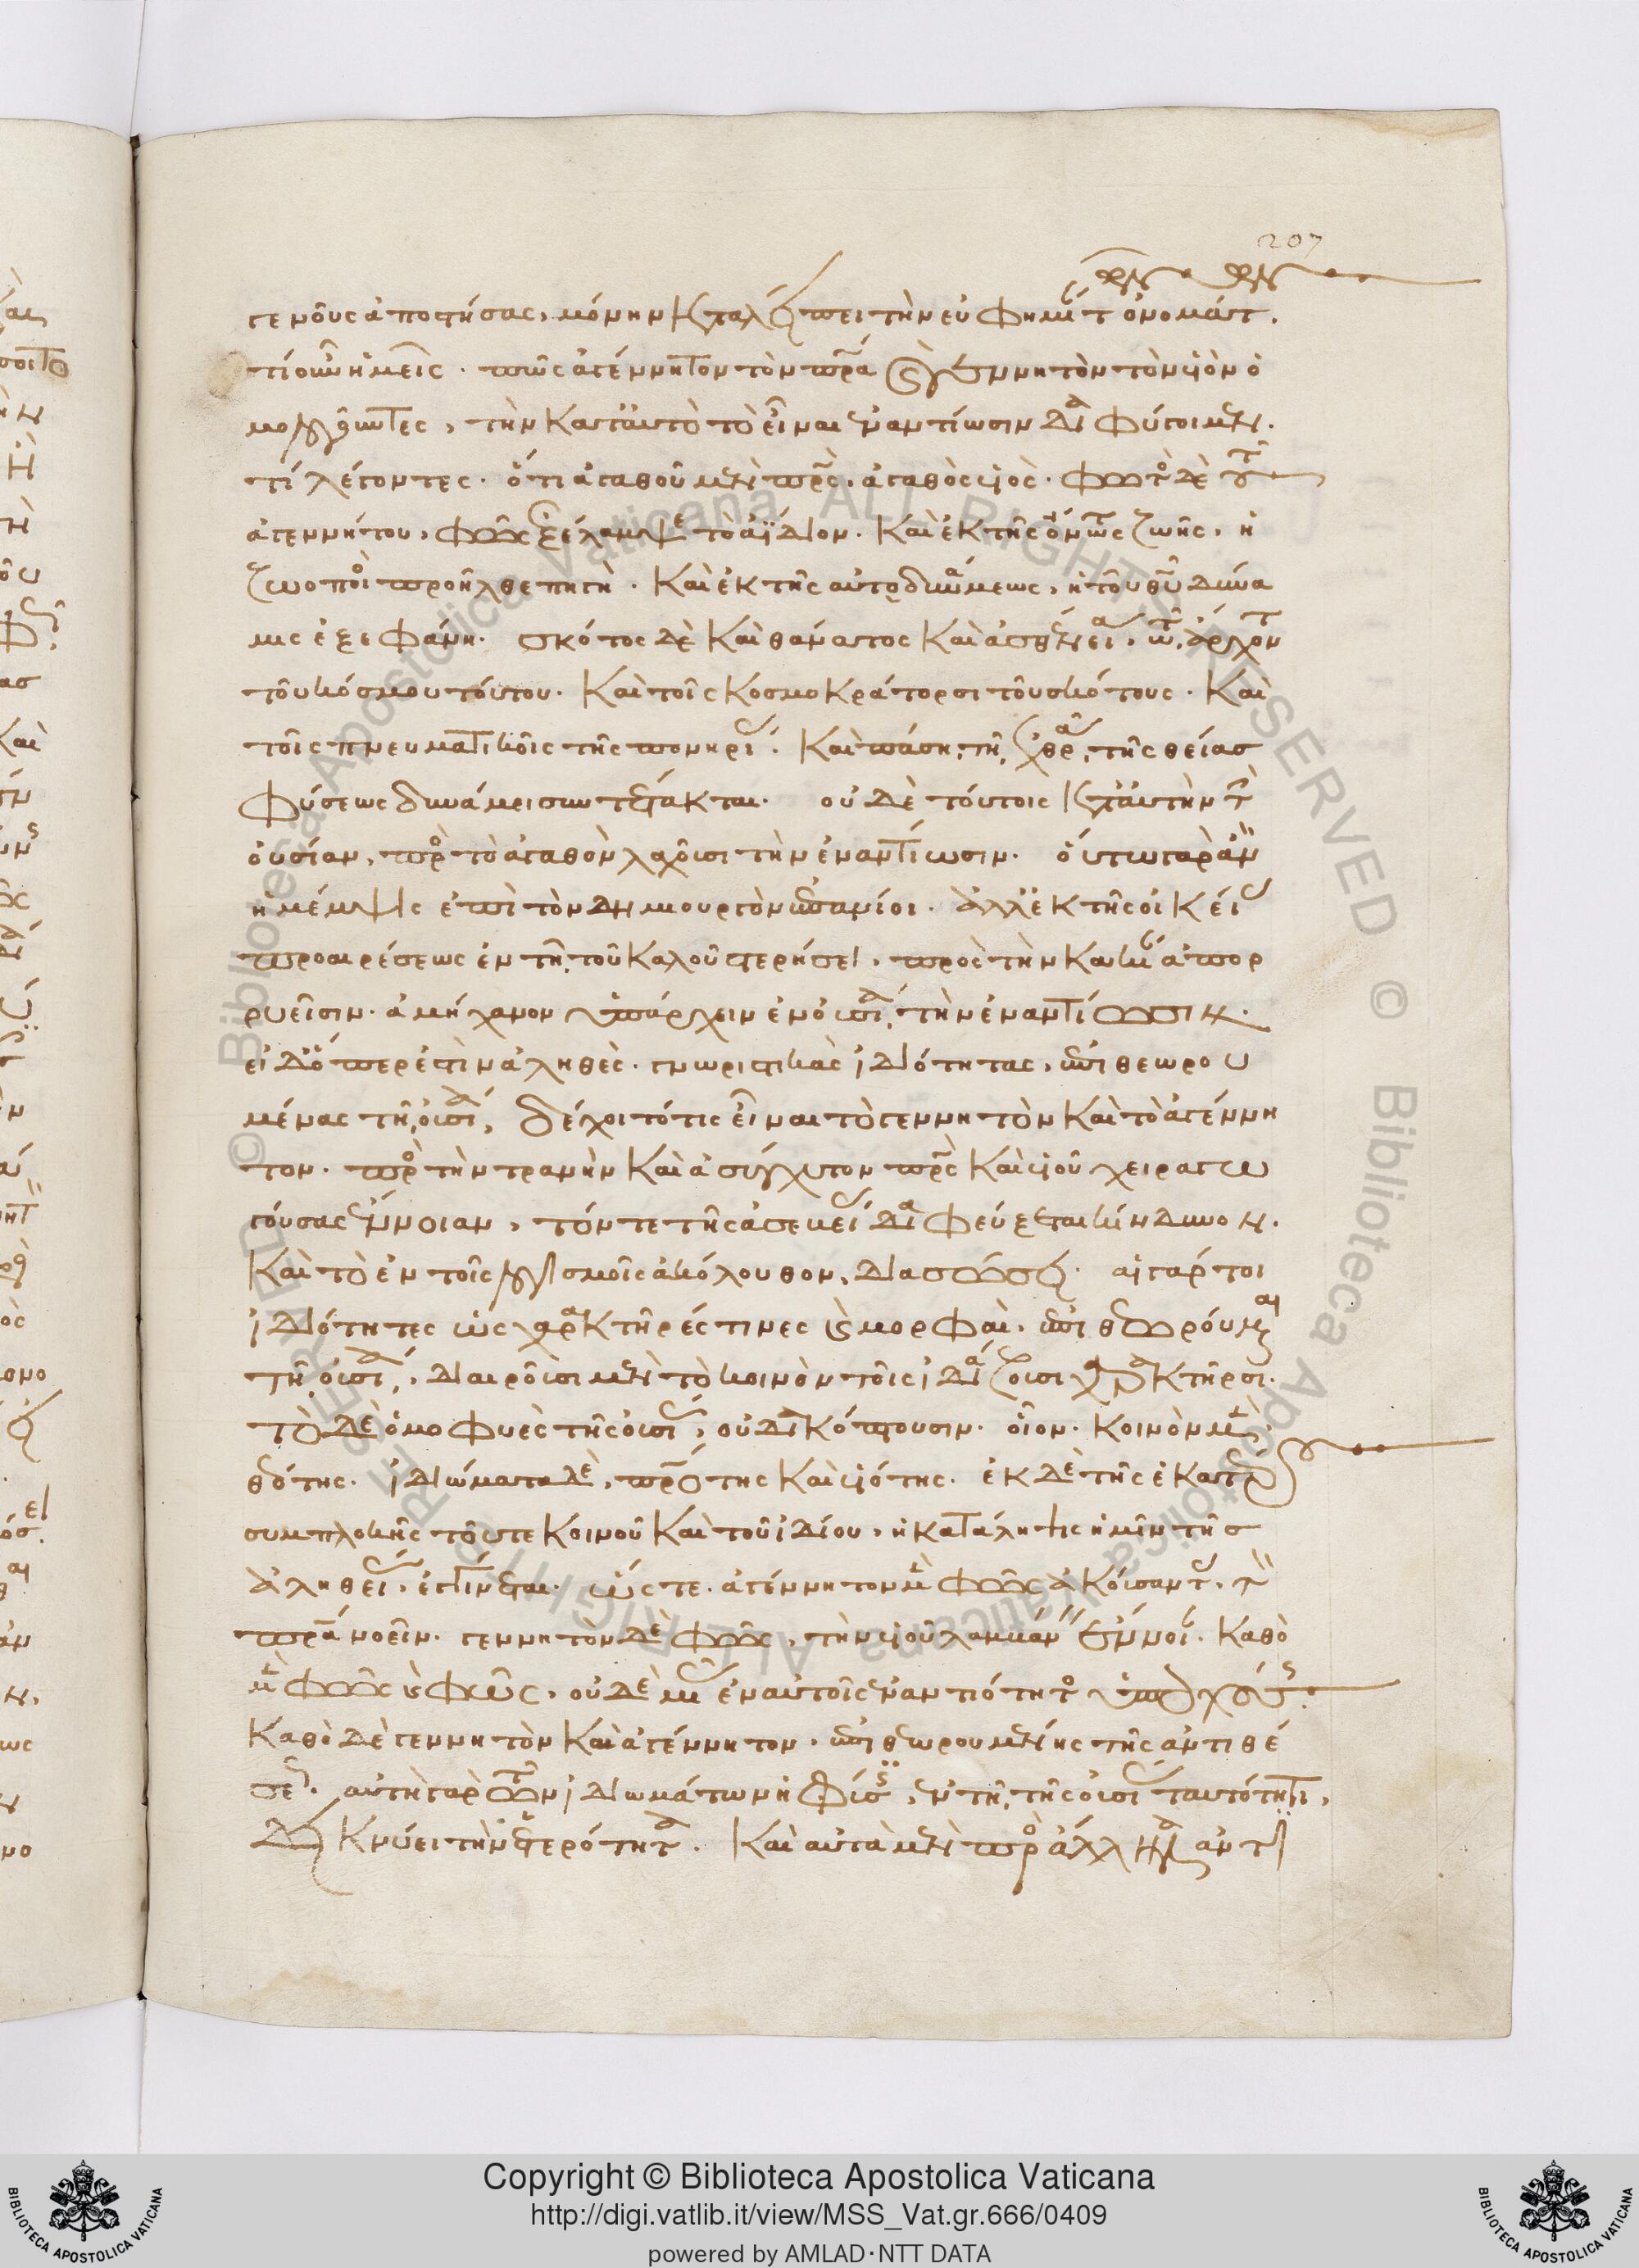 207
γενοῦς ἀποστήσας, μόνην καταλείψει τὴν εὐφημίαν τῶν ὀνομάτων.
τί οὖν ἡμεῖς. πῶς ἀγέννητον τὸν πατέρα καὶ γεννητὸν τὸν υἱὸν ὁ
μολογοῦντες, τὴν κατ' αὐτὸ τὸ εἶναι ἐναντίωσιν διαφύγοιμεν.
τί λέγοντες. ὅτι ἀγαθοῦ μὲν πατρὸς, ἀγαθὸς υἱὸς. φωτὸς δὲ τοῦ
ἀγεννήτου, φῶς ἐξέλαμψε τὸ ἀΐδιον. καὶ ἐκ τῆς ὄντως ζωῆς, ἡ
ζωοποιὸς προῆλθε πηγὴ. καὶ ἐκ τῆς αὐτοδυνάμεως, ἡ τοῦ θεοῦ δύνα
μις ἐξεφάνη. σκότος δὲ καὶ θάνατος καὶ ἀσθένεια, τῷ ἄρχοντι
τοῦ κόσμου τούτου. καὶ τοῖς κοσμοκράτορσι τοῦ σκότους. καὶ
τοῖς πνευματικοῖς τῆς πονηρίας. καὶ πάσῃ τῇ ἐχθρᾷ τῆς θείας
φύσεως δυνάμει συντέτακται. οὐδὲ τούτοις κατ' αὐτὴν τὴν
οὐσίαν, πρὸς τὸ ἀγαθὸν λαχοῦσι τὴν ἐναντίωσιν. οὕτω γὰρ ἂν
ἡ μέμψις ἐπὶ τὸν δημιουργὸν ἐπανίοι. ἀλλ' ἐκ τῆς οἰκείας
προαιρέσεως ἐν τῇ τοῦ καλοῦ στερήσει, πρὸς τὴν κακίαν ἀπορ
ρυεῖσιν. ἀμήχανον ὑπάρχειν ἐν οὐσίᾳ, τὴν ἐναντίωσιν.
εἰ δὲ ὅπερ ἐστὶν ἀληθὲς. γνωριστικὰς ἰδιότητας, ἐπιθεωρου
μένας τῇ οὐσίᾳ, δέχοιτό τις εἶναι τὸ γεννητὸν καὶ τὸ ἀγέννη
τον. πρὸς τὴν τρανὴν καὶ ἀσύγχυτον πατρὸς καὶ υἱοῦ χειραγω
γούσας ἔννοιαν, τόν τε τῆς ἀσεβείας διαφεύξεται κίνδυνον.
καὶ τὸ ἐν τοῖς λογισμοῖς ἀκόλουθον, διασώσει. αἱ γάρ τοι
ἰδιότητες ὡς χαρακτῆρές τινες καὶ μορφαὶ, ἐπιθεωρούμεναι
τῇ οὐσίᾳ, διαιροῦσι μὲν τὸ κοινὸν τοῖς ἰδιάζουσι χαρακτῆρσι.
τὸ δὲ ὁμοφυὲς τῆς οὐσίας, οὐ διακόπτουσιν. οἷον. κοινὸν μὲν ἡ
θεότης. ἰδιώματα δὲ, πατρότης καὶ υἱότης. ἐκ δὲ τῆς ἑκατέρου
συμπλοκῆς τοῦ τε κοινοῦ καὶ τοῦ ἰδίου, ἡ κατάληψις ἡμῖν τῆς
ἀληθείας, ἐγγίνεται. ὥστε. ἀγέννητον μὲν φῶς ἀκούσαντας, τὸν
πατέρα νοεῖν. γεννητὸν δὲ φῶς, τὴν υἱοῦ λαμβάνειν ἔννοιαν. καθὸ
μὲν φῶς καὶ φῶς, οὐδεμιᾶς ἐν αὐτοῖς ἐναντιότητος ὑπαρχούσης.
καθὸ δὲ γεννητὸν καὶ ἀγέννητον, ἐπιθεωρουμένης τῆς ἀντιθέ
σεως. αὕτη γὰρ τῶν ἰδιωμάτων ἡ φύσις, ἐν τῇ τῆς οὐσίας ταυτότητι,
δεικνύει τὴν ἑτερότητα. καὶ αὐτὰ μὲν πρὸς ἄλληλα ἀντι
Copyright © Biblioteca Apostolica Vaticana
http://digi.vatlib.it/view/MSS_Vat.gr.666/0409
powered by AMLAD·NTT DATA